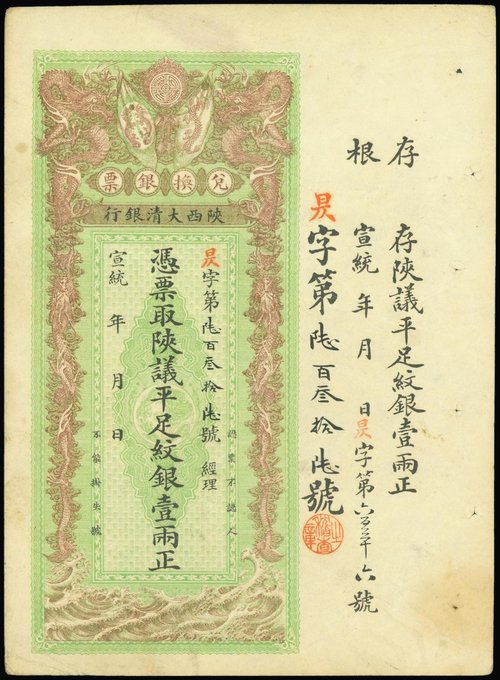 存根
存陝議平足紋銀壹兩正
宣統 年 月 日 昃字第六百三十六號
昃字第陸百叁拾陸號
兌換銀票
陝西大清銀行
昃字第陸百叁拾陸號 經理
憑票取陝議平足紋銀壹兩正
宣統 年 月 日
票不認人
不能掛失